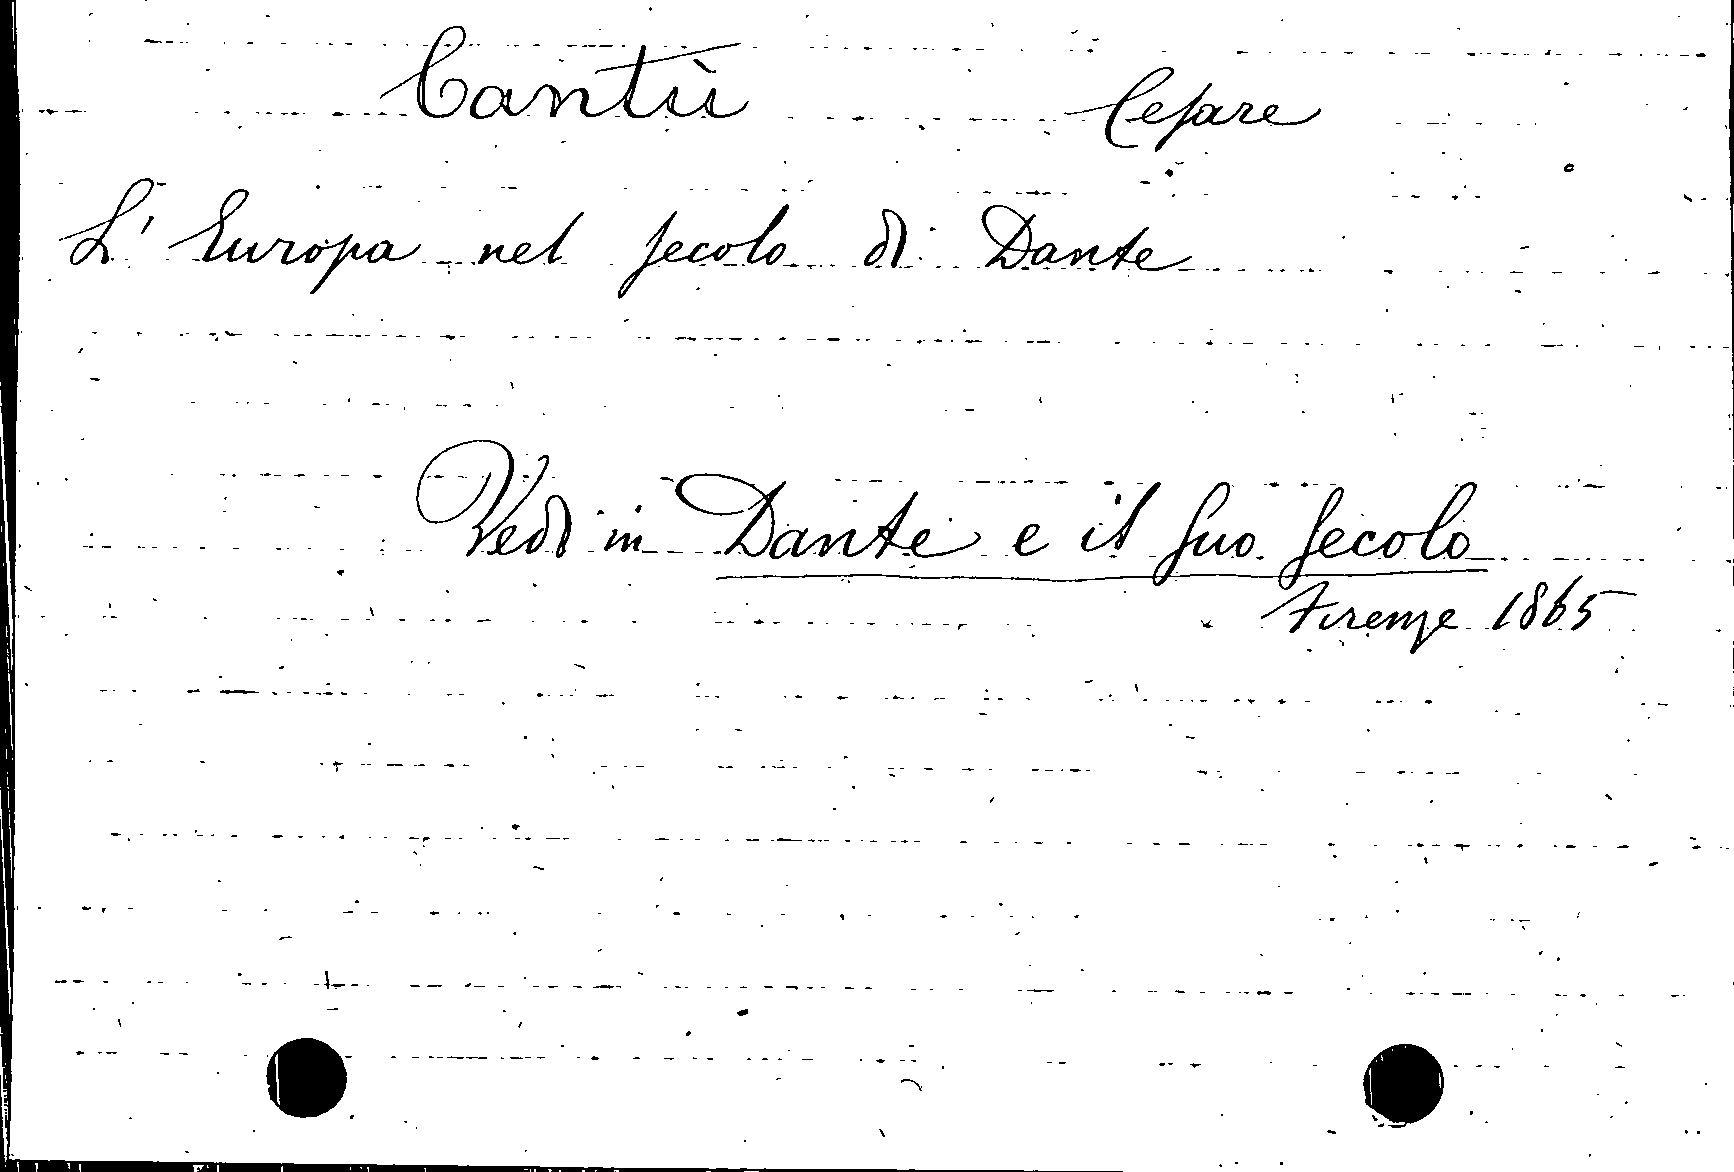 Cantù Cesare
L'Europa nel secolo di Dante
Vedi in Dante e il suo secolo
Firenze 1865